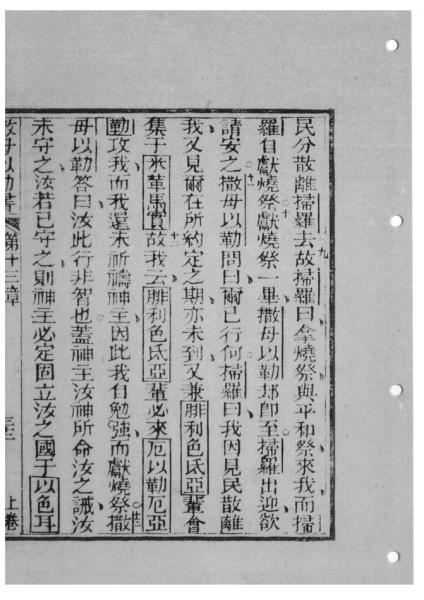 民分散離掃羅去故掃羅曰拿燒祭與平和祭來我而掃
羅自獻燒祭獻燒祭一畢撒母以勒却即至掃羅出迎欲
請安之撒母以勒問曰爾已行何掃羅曰我因見民散離
我又見爾在所約定之期亦未到又兼腓利色氐亞輩會
集于米革馬實故我云腓利色氐亞輩必來厄以勒厄亞
勒攻我而我還未祈禱神主因此我自勉強而獻燒祭撒
母以勒答曰汝此行非智也蓋神主汝神所命汝之誡汝
未守之汝若已守之則神主必定固立汝之國于以色耳
撒母以勒書 第十三章 三三 上卷
九
十
十一
十二
十三